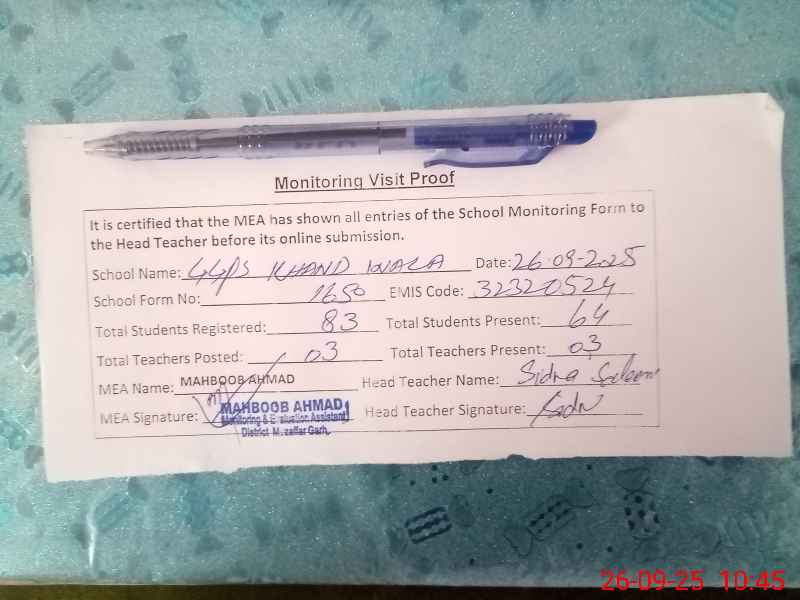 Monitoring Visit Proof
It is certified that the MEA has shown all entries of the School Monitoring Form to
the Head Teacher before its online submission.
School Name: GGPS KHAND WALA Date: 26-09-2025
School Form No: 1650 EMIS Code: 32320524
Total Students Registered: 83 Total Students Present: 64
Total Teachers Posted: 03 Total Teachers Present: 03
MEA Name: MAHBOOB AHMAD Head Teacher Name: Sidra Saleem
MEA Signature: MAHBOOB AHMAD Head Teacher Signature:
Monitoring & Evaluation Assistant
District Muzaffar Garh.
26-09-25 10:45